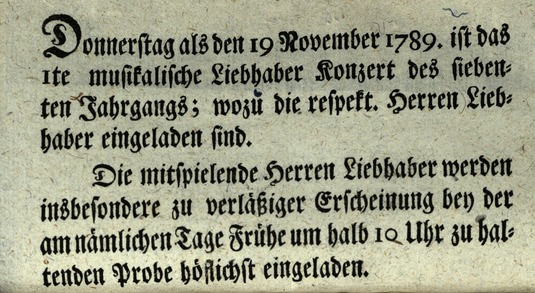 Donnerstag als den 19 November 1789. ist das
1te musikalische Liebhaber Konzert des sieben-
ten Jahrgangs; wozu die respekt. Herren Lieb-
haber eingeladen sind.
Die mitspielende Herren Liebhaber werden
insbesondere zu verläßiger Erscheinung bey der
am nämlichen Tage Frühe um halb 10 Uhr zu hal-
tenden Probe höflichst eingeladen.